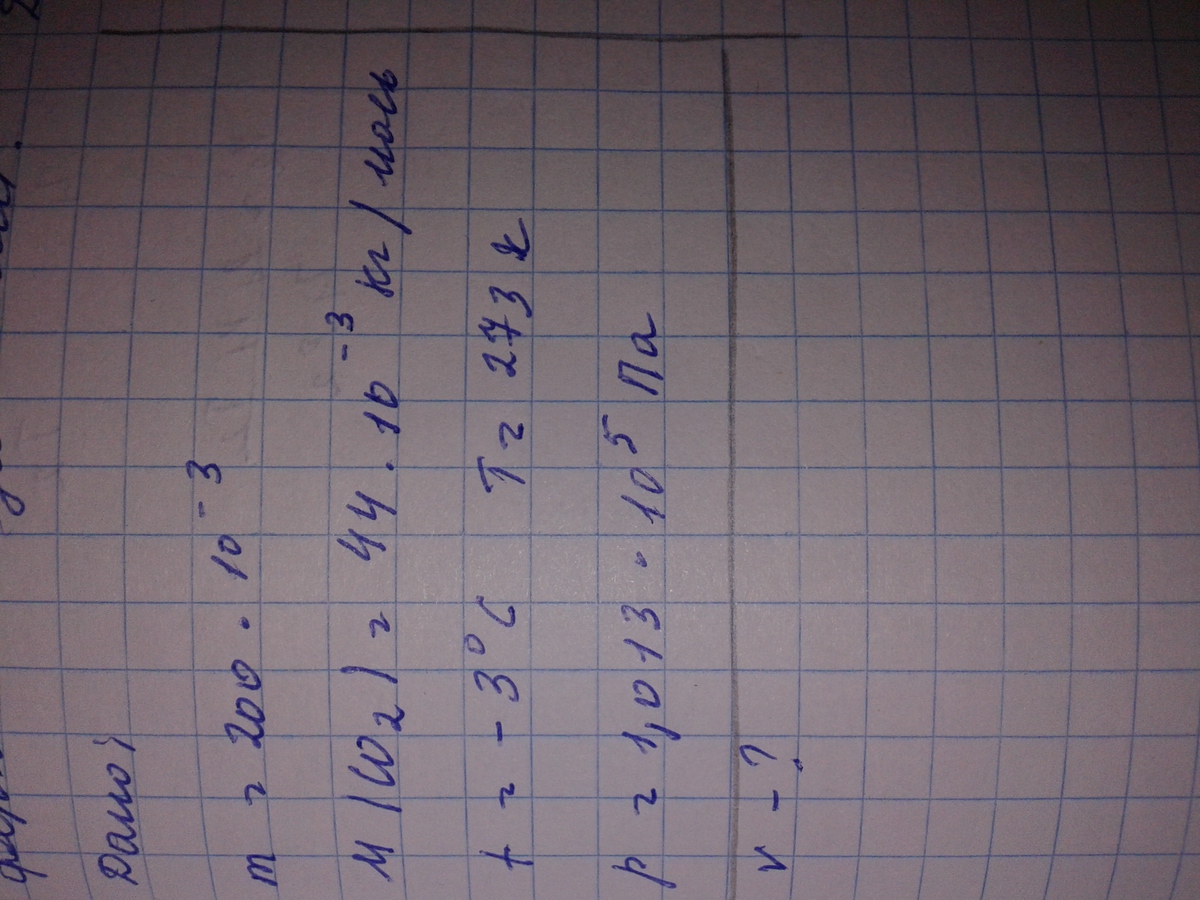 Дано:
m = 200 · 10⁻³
M (CO₂) = 44 · 10⁻³ кг/моль
t = -3°C T = 273 K
p = 1,013 · 10⁵ Па
V - ?